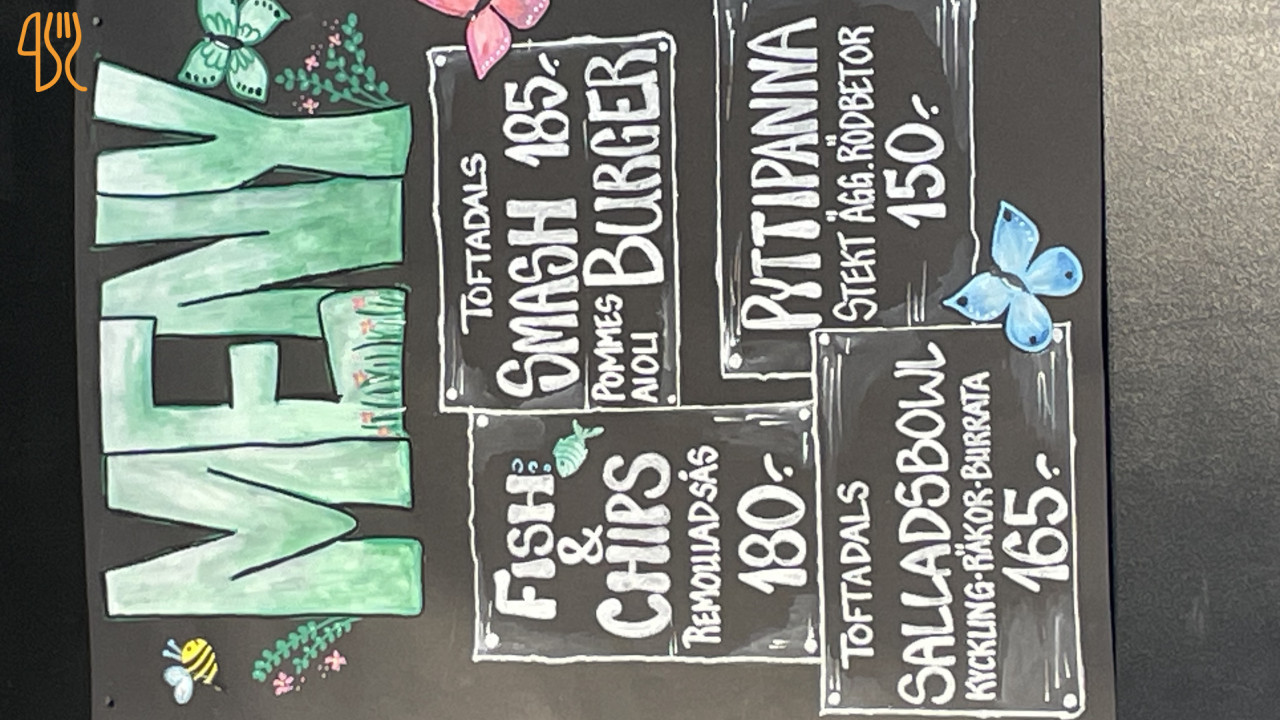 MENY
TOFTADALS
SMASH 185:-
POMMES
AIOLI
BURGER
FISH
&
CHIPS
REMOULADSÅS
180:-
PYTTIPANNA
STEKT ÄGG. RÖDBETOR
150:-
TOFTADALS
SALLADSBOWL
KYCKLING·RÄKOR·BURRATA
165:-